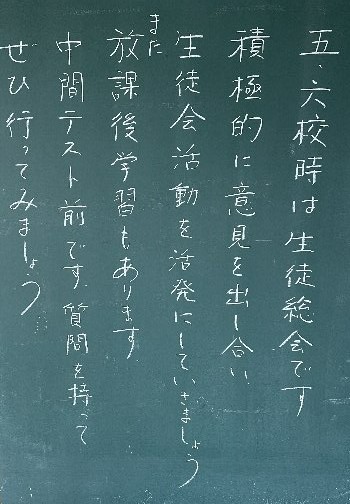 五、六校時は生徒総会です
積極的に意見を出し合い
生徒会活動を活発にしていきましょう
また
放課後学習もあります
中間テスト前です。質問を持って
ぜひ行ってみましょう